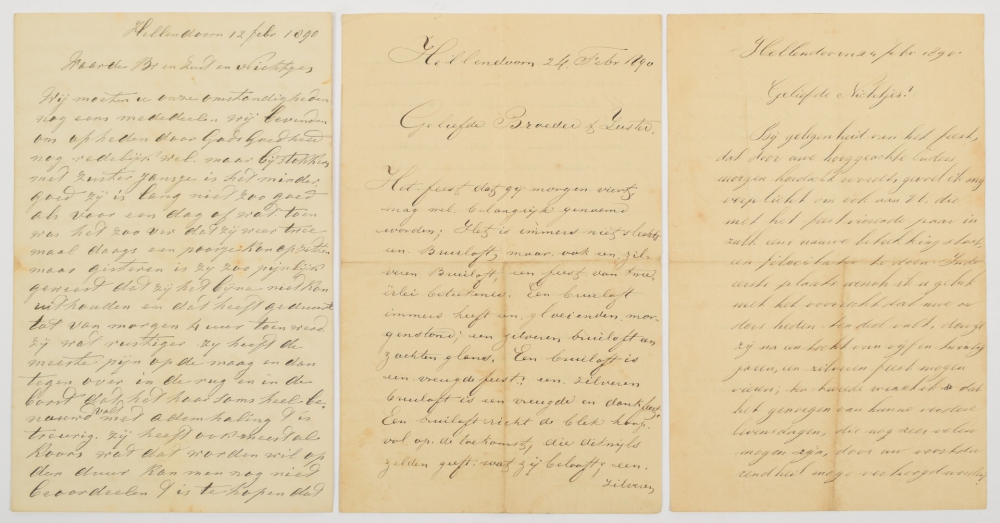 Hellendoorn 12 febr 1890
Waarde Br en Zust en Nichtjes
Wij moeten u onze omstandigheden
nog eens mededeelen wij bevinden
ons op heden door Gods Goedheid
nog redelijk wel. maar bij stokken
met zuster Jansje is het minder
goed zij is lang niet zoo goed
als voor een dag of wat toen
was het zoo ver dat zij weer twee
maal daags een poosje kon opzitten
maar gisteren is zij zoo pijnlijk
geweest dat zij het bijna niet kon
uithouden en dat heeft geduurd
tot van morgen 4 uur toen werd
zij wat rustiger zij heeft de
meeste pijn op de maag en dan
tegen over in de rug en in de
borst dat het haar soms heel be-
naauwd valt met ademhaling t is
treurig. zij heeft ook meest al
koors wat dat worden wil op
dan duur kan men nog niet
beoordeelen t is te hopen dat
Hellendoorn 24 Febr 1890
Geliefde Broeder & Zuster.
Het feest dat gij morgen viert,
mag wel belangrijk genoemd
worden; Het is immers niet slechts
een Bruiloft, maar ook een zil-
veren Bruiloft, een feest van twee-
ërlei beteekenis. Een bruiloft
immers heeft een gloeienden mor-
genstond; een zilveren bruiloft een
zachten glans. Een bruiloft is
een vreugdefeest; een zilveren
bruiloft is een vreugde en dankfeest
Een bruiloft richt de blik hoop-
vol op de toekomst, die dikwijls
zelden geeft wat zij belooft; een
zilveren
Hellendoorn 24 febr 1890.
Geliefde Nichtjes!
Bij gelegenheid van het feest,
dat door uwe hooggeachte ouders
morgen herdacht wordt, gevoel ik mij
verplicht om ook aan U. die
met het feestvierende paar in
zulk een nauwe betrekking staat
een felicitatie te doen. In de
eerste plaats wensch ik u geluk
met het voorrecht dat uwe ou-
ders heden ten deel valt, daar
zij na een tocht van vijf en twintig
jaren, een zilveren feest mogen
vieren; ten tweede wensch ik dat
het genoegen van hunne verdere
levensdagen, die nog zeer velen
mogen zijn, door uw voortdu-
rend heil moge verhoogd worden;